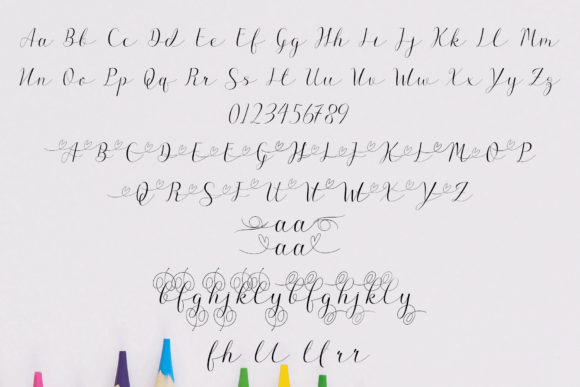 Aa Bb Cc Dd Ee Ff Gg Hh Ii Jj Kk Ll Mm
Nn Oo Pp Qq Rr Ss Tt Uu Vv Ww Xx Yy Zz
0123456789
A B C D E F G H I J K L M O P
Q R S T U V W X Y Z
aa
aa
bfghjklybfghjkly
fh ll ll rr